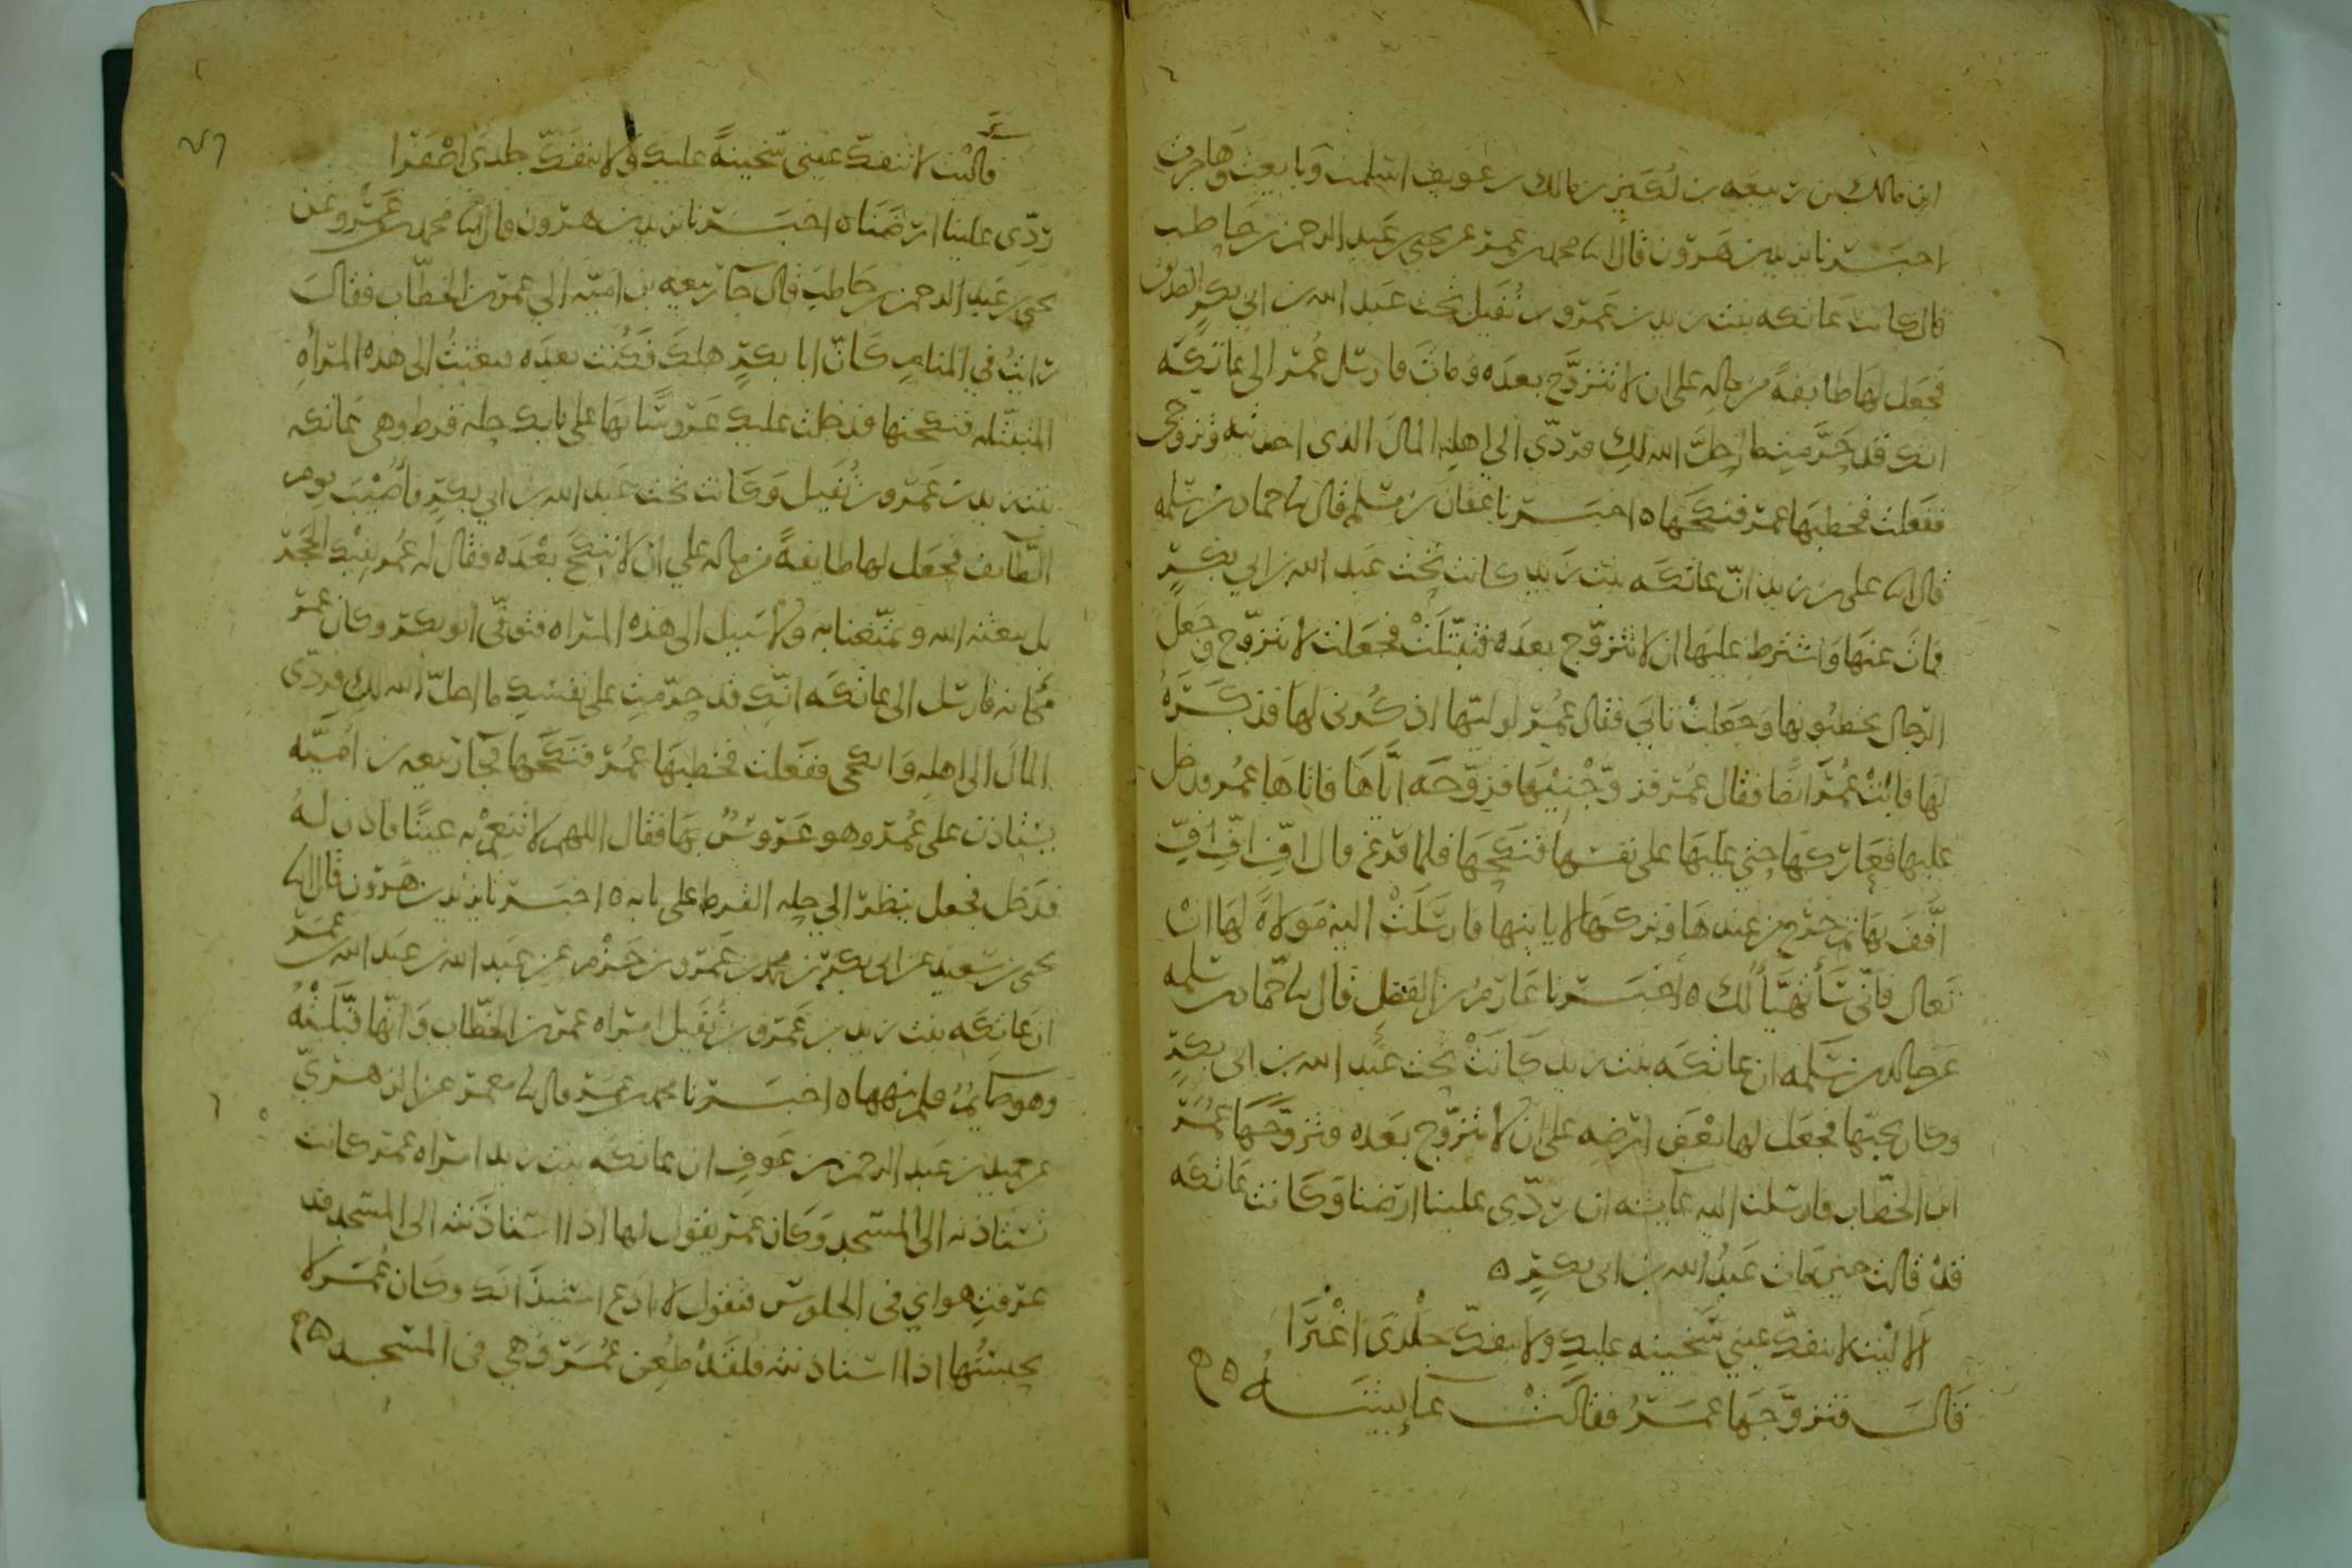 ابن مالك بن ربيعه بن لكيز بن مالك بن عوف اسلمت وبايعت وهاجرت
احبرنا يزيد بن هرون قال انا محمد بن عمر عن يحيى بن عبد الرحمن بن حاطب
قال كانت عاتكه بنت زيد بن عمرو بن نفيل تحت عبد الله بن ابي بكر الصديق
فجعل لها طايفةً من ماله على ان لا تتزوج بعده ومات فارسل عمر الى عاتكه
انك قد حرمت ما احل الله لك فردى الى اهله المال الذى اخذتيه وتزوجى
ففعلت فخطبها عمر فنكحها ه اخبرنا عفان بن مسلم قال نا حماد بن سلمه
قال انا على بن زيد انّ عاتكه بنت زيد كانت تحت عبد الله بن ابي بكر
فمات عنها واشترط عليها ان لا تزوج بعده فتبتّلت فجعلت لا تزوج وجعل
الرجال يخطبونها وجعلت تابى فقال عمر لوليّها اذكرنى لها فذكره
لها فابت عمر ايضا فقال عمر زوّجنيها فزوجه اياها فاتاها عمر فدخل
عليها فعاركها حتى غلبها على نفسها فنكحها فلما فرغ قال افّ افّ افّ
افّف بها ثم خرج من عندها وتركها لا ياتيها فارسلت اليه مولاةً لها ان
تعال فانّى ساتهيّأ لك ه اخبرنا عارم بن الفضل قال نا حماد بن سلمه
عن خالد بن سلمه ان عاتكه بنت زيد كانت تحت عبد الله بن ابى بكر
وكان يحبّها فجعل لها بعض ارضه على ان لا تزوج بعده فتزوجها عمر
ابن الخطاب فارسلت اليه عايشه ان ردّى علينا ارضنا وكانت عاتكه
قد قالت حين مات عبد الله بن ابى بكر ه
آليت لا تنفك عيني سخينه عليك ولا ينفك جلدى اغبرا
قال فتزوجها عمر فقالت عايشه ه
قالت لا تنفك عينى سخينةً عليك ولا ينفك جلدى اصفرا
ردّى علينا ارضنا ه اخبرنا يزيد بن هرون قال انا محمد بن عمرو عن
يحيى بن عبد الرحمن بن حاطب قال جا ربيعه بن اميّه الى عمر بن الخطاب فقال
رايت في المنام كان ابا بكر هلك فكنت بعده فبعثت الى هذه المراه
المتبتّله فنكحتها فدخلت عليك عروسًا بها على بابك حله قرط وهى عاتكه
بنت زيد بن عمرو بن نفيل وكانت تحت عبد الله بن ابي بكر فاصيب يوم
الطايف فجعل لها طايفةً من ماله على ان لا تنكح بعده فقال له عمر بفيك الحجر
بل يبقيه الله ويمتّعنا به ولا سبيل الى هذه المراه فتوفّى ابو بكر وكان عمر
مكانه فارسل الى عاتكه انّك قد حرّمت على نفسك ما احلّ الله لك فردّى
المال الى اهله وانكحى ففعلت فخطبها عمر فنكحها فجا ربيعه بن اميّه
يستاذن على عمر وهو عروس بها فقال اللهم لا تنعم به عينًا فاذن له
فدخل فجعل ينظر الى حله القرط على بابه ه اخبرنا يزيد بن هرون قال انا
يحيى بن سعيد عن ابى بكر بن محمد بن عمرو بن حزم عن عبد الله بن عبد الله بن عمر
ان عاتكه بنت زيد بن عمرو بن نفيل امراه عمر بن الخطاب وانّها قبّلته
وهو صايم فلم ينهها ه اخبرنا محمد بن عمر قال نا معمر عن الزهرى
عن حميد بن عبد الرحمن بن عوف ان عاتكه بنت زيد امراه عمر كانت
تستاذنه الى المسجد وكان عمر يقول لها اذا استاذنته الى المسجد قد
عرفت هواي فى الجلوس فتقول لا ادع استيذانك وكان عمر لا
يحبسها اذا استاذنته فلقد طعن عمر وهي فى المسجد ه